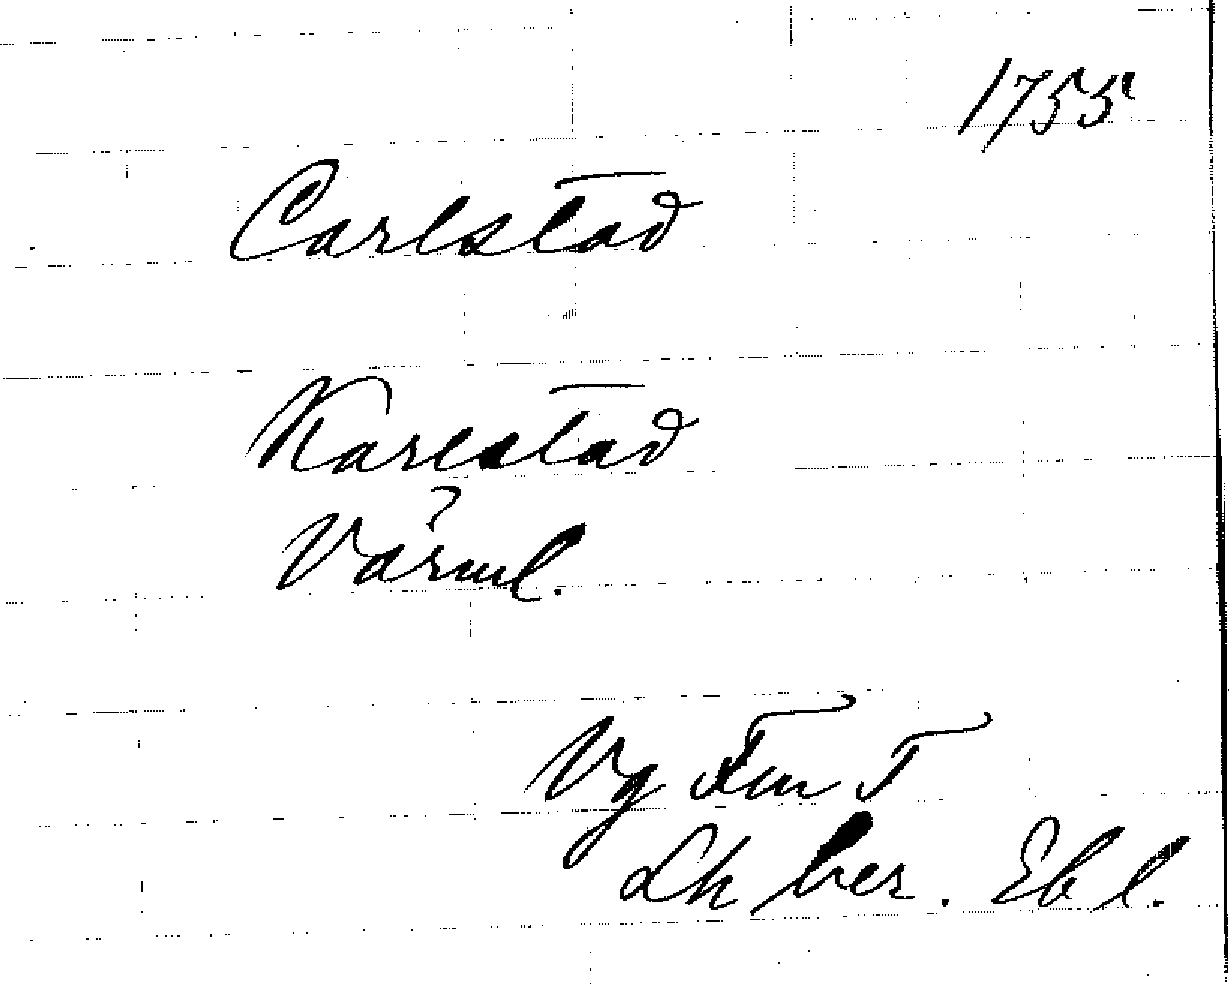 1755
Carlstad
Karlstad
?
Värml.
Vg Fm T
Lh ber. Ebl.